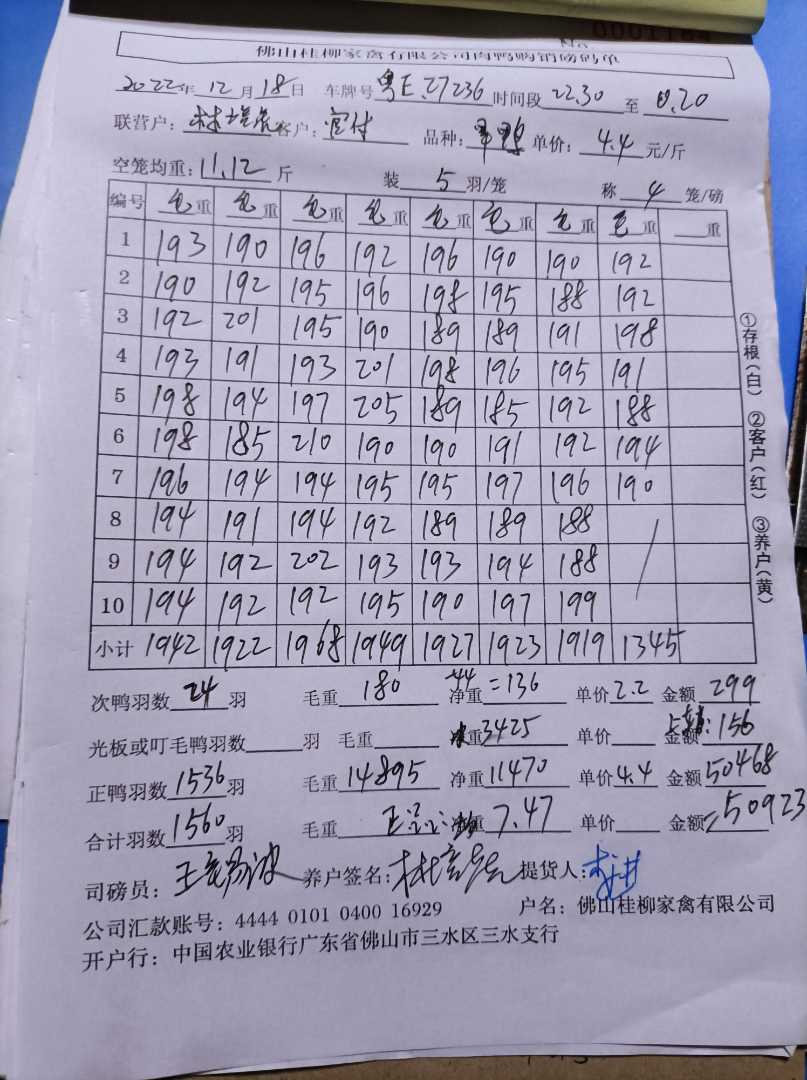 佛山桂柳家禽有限公司肉鸭购销磅码单
2022年12月18日 车牌号粤E.27236时间段22.30至0.20
联营户: 客户: 品种: 单价: 4.4元/斤
空笼均重: 11.12斤 装5羽/笼 称4笼/磅
编号 毛重 毛重 毛重 毛重 毛重 毛重 毛重 毛重 重
1 193 190 196 192 196 190 190 192
2 190 192 195 196 198 195 188 192
3 192 201 195 190 189 189 191 198
4 193 191 193 201 198 196 195 191
5 198 194 197 205 189 185 192 188
6 198 185 210 190 190 191 192 194
7 196 194 194 195 195 197 196 190
8 194 191 194 192 189 189 188
9 194 192 202 193 193 194 188
10 194 192 192 195 190 197 199
小计 1942 1922 1968 1949 1927 1923 1919 1345
次鸭羽数24羽 毛重180 净重44=136 单价2.2 金额299
光板或叮毛鸭羽数羽 毛重 重3425 单价 金额: 156
正鸭羽数1536羽 毛重14895 净重11470 单价4.4 金额50468
合计羽数1560羽 毛重 重7.47 单价 金额=50923
司磅员: 养户签名: 提货人:
公司汇款账号: 4444 0101 0400 16929 户名: 佛山桂柳家禽有限公司
开户行: 中国农业银行广东省佛山市三水区三水支行
①存根(白) ②客户(红) ③养户(黄)